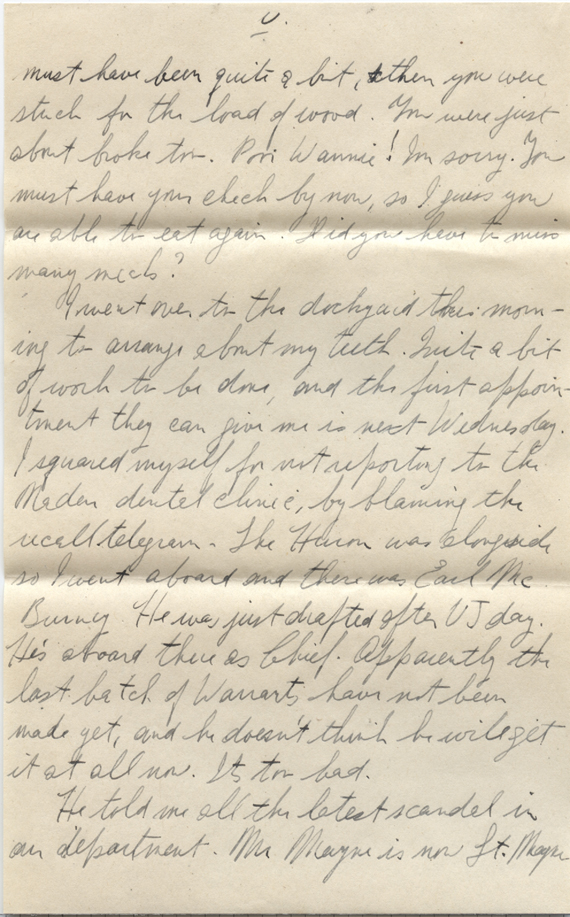 must have been quite a bit, then you were
stuck for the load of wood. You were just
about broke too. Poor Wannie! Im sorry. You
must have your check by now, so I guess you
are able to eat again. Did you have to miss
many meals?
I went over to the dockyard this morn-
ing to arrange about my teeth. Quite a bit
of work to be done, and the first appoin-
tment they can give me is next Wednesday.
I squared myself for not reporting to the
Naden dental clinic, by blaming the
recall telegram. The Huron was alongside
so I went aboard and there was Earl Mc
Burney He was just drafted after VJ day.
He's aboard there as Chief. Apparently the
last batch of Warrants have not been
made yet, and he doesn't think he will get
it at all now. Its too bad.
He told me all the latest scandel in
our department. Mr Mayne is now Lt. Mayne